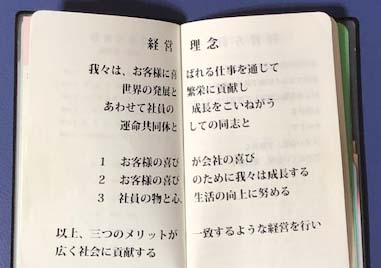 経営理念
我々は、お客様に喜ばれる仕事を通じて
世界の発展と繁栄に貢献し
あわせて社員の成長をこいねがう
運命共同体としての同志と
1 お客様の喜びが会社の喜び
2 お客様の喜びのために我々は成長する
3 社員の物と心、生活の向上に努める
以上、三つのメリットが一致するような経営を行い
広く社会に貢献する